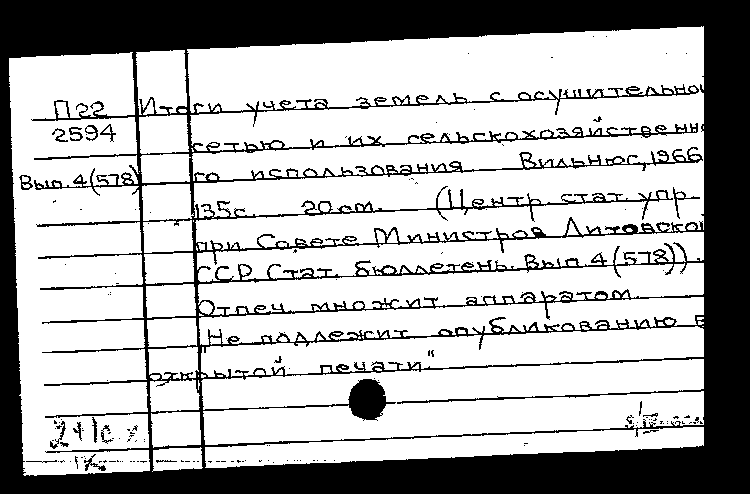 П22 Итоги учета земель с осушительной
2594 сетью и их сельскохозяйственно
Вып. 4(578) го использования Вильнюс, 1966
135с. 20см. (Центр. стат. упр.
при Совете Министров Литовской
ССР. Стат. бюллетень. Вып. 4(578)).
Отпеч. множит. аппаратом.
"Не подлежит опубликованию в
открытой печати".
2+1с